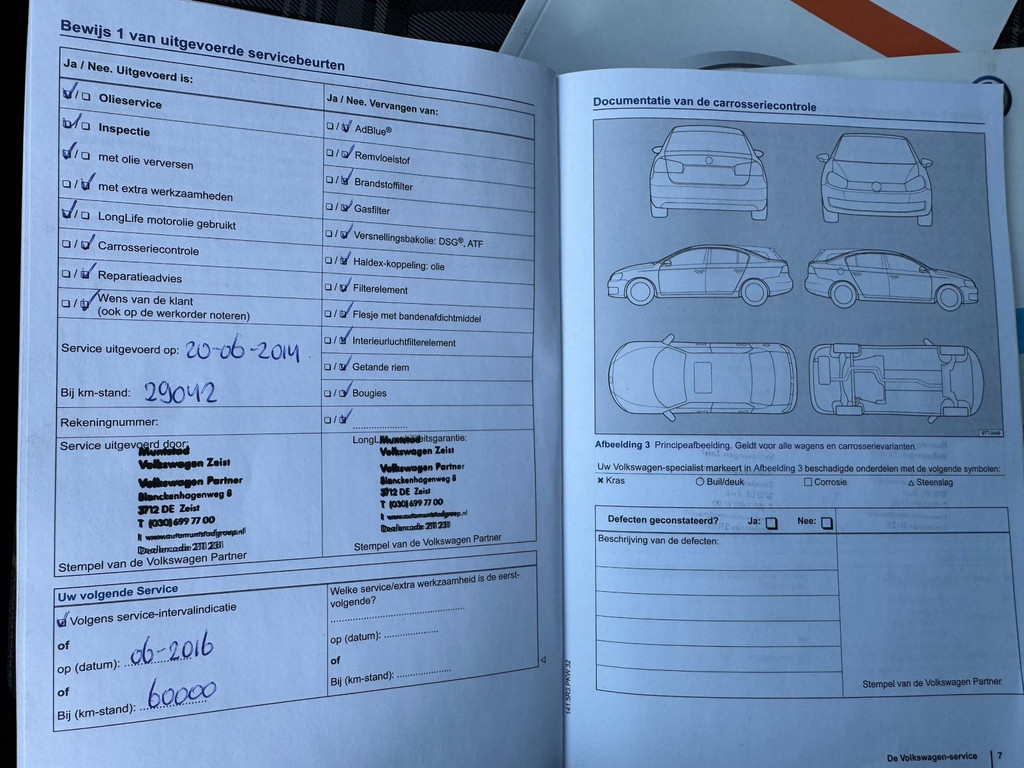 Bewijs 1 van uitgevoerde servicebeurten
Ja / Nee. Uitgevoerd is:
Olieservice
Inspectie
met olie verversen
met extra werkzaamheden
LongLife motorolie gebruikt
Carrosseriecontrole
Reparatieadvies
Wens van de klant
(ook op de werkorder noteren)
Service uitgevoerd op: 20-06-2014
Bij km-stand: 29042
Rekeningnummer:
Ja / Nee. Vervangen van:
AdBlue®
Remvloeistof
Brandstoffilter
Gasfilter
Versnellingsbakolie: DSG®, ATF
Haldex-koppeling: olie
Filterelement
Flesje met bandenafdichtmiddel
Interieurluchtfilterelement
Getande riem
Bougies
Service uitgevoerd door:
Muntstad
Volkswagen Zeist
Volkswagen Partner
Blanckenhagenweg 8
3712 DE Zeist
T (030) 699 77 00
I www.automuntstadgroep.nl
Dealercode 211 231
Stempel van de Volkswagen Partner
Muntstad
Volkswagen Zeist
Volkswagen Partner
Blanckenhagenweg 8
3712 DE Zeist
T (030) 699 77 00
I www.automuntstadgroep.nl
Dealercode 211 231
Stempel van de Volkswagen Partner
Uw volgende Service
Volgens service-intervalindicatie
of
op (datum): 06-2016
of
Bij (km-stand): 60000
Welke service/extra werkzaamheid is de eerst-
volgende?
op (datum):
of
Bij (km-stand):
141.5R3.PKW.32
Documentatie van de carrosseriecontrole
Afbeelding 3 Principeafbeelding. Geldt voor alle wagens en carrosserievarianten.
Uw Volkswagen-specialist markeert in Afbeelding 3 beschadigde onderdelen met de volgende symbolen:
× Kras ○ Buil/deuk □ Corrosie △ Steenslag
Defecten geconstateerd? Ja: Nee:
Beschrijving van de defecten:
Stempel van de Volkswagen Partner
De Volkswagen-service 7